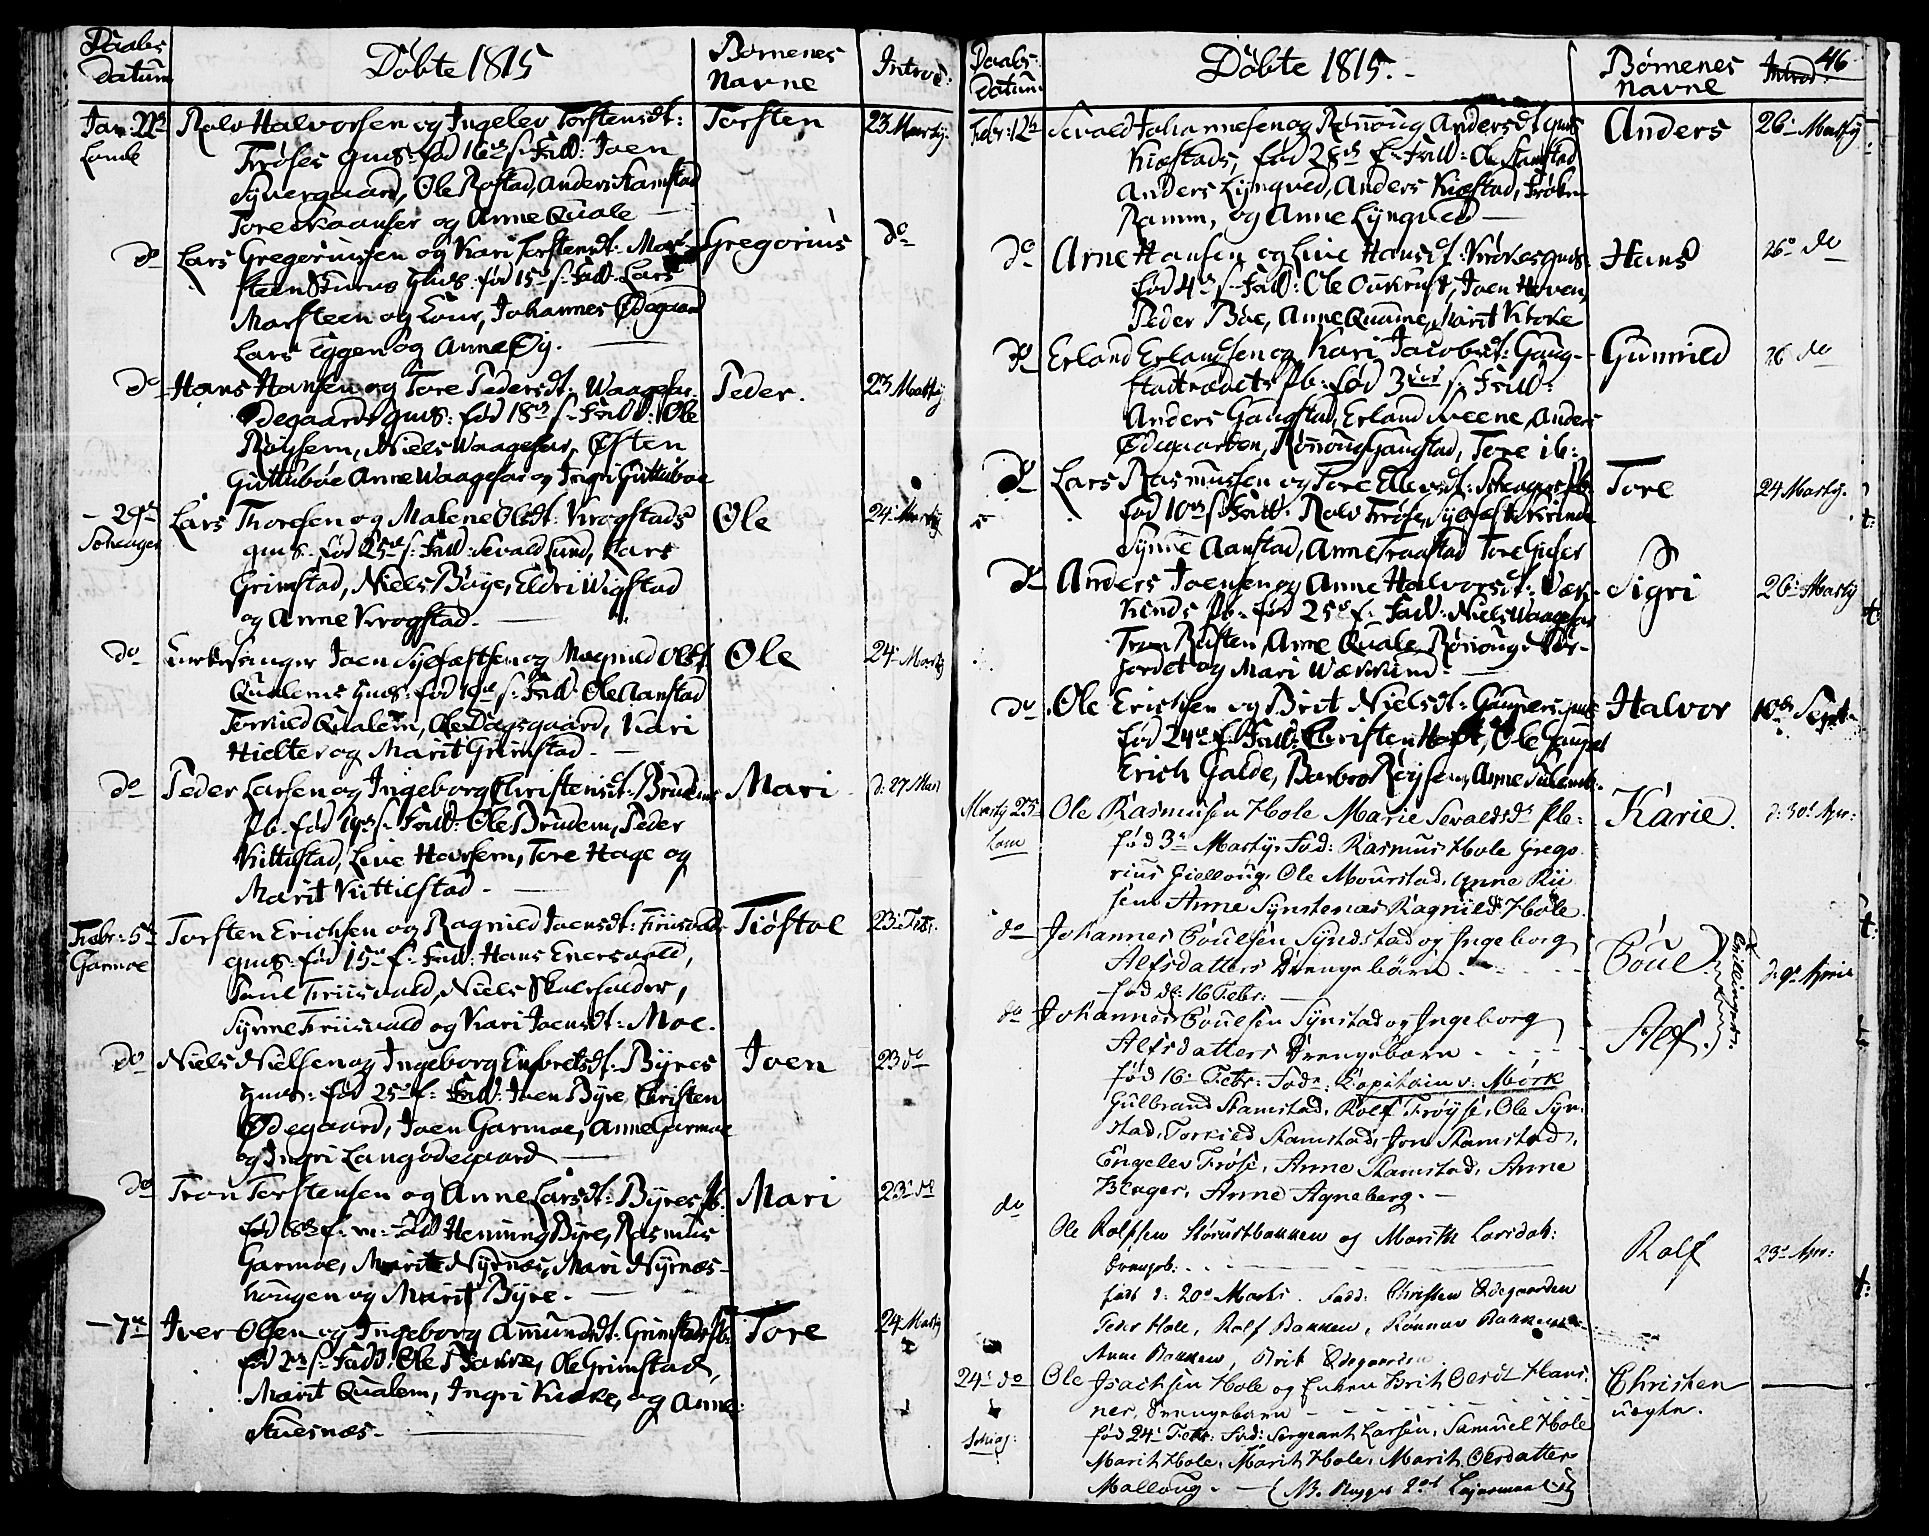 Daabs
datum
Döbte 1815
Børnenes
Navne
Introd:
Jan: 22
Lomb
Rolv Halvorsen og Ingelev Torstensdt:
Frøses gmd: fød 16 s: Fadd: Joen
Syvergaard, Ole Rostad, Anders Stamstad
Tore Skaanser og Anne Quale
Torsten
23 Marty
do
Lars Gregoriussen og Kari Torstensdt: Mar
steen gmd: fød 15 s: Fadd: Lars
Marsteen og Lour, Johannes Ødegaard
Lars Eggen og Anne Øy.
Gregorius
do
do
Hans Hansen og Tore Pedersdt: Waagesar
Ødegaards gmd: fød 18 s: Fadd: Ole
Røysem, Niels Waagesar, Østen
Guttuboe Anne Waagesar og Ingri Guttuboe
Peder.
23 Marty
29
Lars Thoresen og Malene Olsdt: Krogstads
gmd: fød 25 s: Fadd: Sevald Lund, Lars
Grimstad, Niels Böye, Eldri Wigstad
og Anne Krogstad.
Ole
24 Marty
do
Kirkesanger Joen Sylfæstsen og Magnild Olsd
Qualems gmd: fød 19 s: Fadd: Ole Aanstad
Torkild Qualem, Ole Dagsgaard, Kari
Hielter og Marit Grimstad.
Ole
24 Marty
do
Peder Larsen og Ingeborg Christensdt: Brudems
Pb: fød 19 s: Fadd: Ole Brudem, Peder
Kuttilstad, Live Harsem, Tore Hage og
Marit Kuttilstad.
Mari
d: 27 Mart
Febr: 5
Garmoe
Torsten Erichsen og Ragnild Joensdt: Friisvold
gmd: fød 15 f: Fadd: Hans Enersvold,
Poul Friisvold, Niels Skaleholder,
Synne Friisvold og Kari Joensdt: Moe.
Tiøstol
23 Febr:
do
Niels Nielsen og Ingeborg Embretsdt: Byres
gmd: fød 25 f: Fadd: Iven Byre, Christen
Ødegaard, Joen Garmoe, Anne Garmoe
og Ingri Langødegaard
Joen
23 do
do
Tron Torstensen og Anne Larsdt: Byres Pb:
fød 8 f: m: Fadd Henning Byre, Rasmus
Garmoe, Marit Nyrnæs, Mari Nyrnæs-
hougen og Marit Byre.
Mari
23 do
7
Iver Olsen og Ingeborg Amundsdt: Grimstads Pb:
fød 2 s: Fadd: Ole Bakke, Ole Grimstad,
Marit Qualem, Ingri Kirke, og Anne
Stuesnæs.
Tore
24 Marty
Daabs:
datum
Döbte 1815.
Børnenes
Navne
Introd:
46
Febr: 12
Sevald Johannesen og Rønnoug Andersdt gmd
Kiæstads, fød 28 f: Fadd: Ole Stamstad
Anders Lyngved, Anders Kiæstad, Frøken
Ramm, og Anne Lyngved
Anders
26 Marty
do
Arne Hansen og Live Hansd: Krokes gmd:
fød 4 s: Fadd: Ole Aukrust, Joen Hoven,
Peder Bøe, Anne Quamme, Marit Kroke
Hans
26 do
do
Erland Erlandsen og Kari Jacobsdt: Gaug-
stadtrædets Pb: fød 3 s: Fadd:
Anders Gaugstad, Erland Sveene, Anders
Ødegaarden, Rønnoug Gaugstad, Tore ib:
Gunnild
26 do
do
Lars Rasmussen og Tore Ellevsdt: Pb:
fød 10 s: Fadd: Rolv Frøse, Sylfæst
Synne Aanstad, Anne Traastad Tore
Tore
24 Marty.
do
Anders Joensen og Anne Halvorsdt: Væk-
kinds Pb: fød 25 f: Fadd: Niels Waagesar
Tron Rusten, Anne Quale, Rønnoug
og Mari Wækkind.
Sigri
26 Marty
do
Ole Erichsen og Brit Nielsdt: Gaupers gmd
fød 24 f: Fadd: Christen Hoft, Ole Gauper
Erich Galde, Barbro Røysem, Anne
Halvor
10de Sept
Marty 25
Lom
Ole Rasmussen Hole Marie Sevaldsd: Pb:
fød 3 Marty: Fad: Rasmus Hole Grego
rius Gielloug, Ole Mourstad, Anne Rii
sem Anne Synstenæs Ragnild Hole
Karie.
d: 30 Apr:
do
Johannes Poulsen Syndstad og Ingeborg
Alfsdatters Drengebarn
fød d: 16 Febr:
Poul
Tvillinger
d: 9 April
do
Johannes Poulsen Synstad og Ingeborg
Alfsdatters Drengebarn
fød 16 Febr: Fadr: Capitain v: Mørk
Gulbrand Stamstad, Rolf Frøyse, Ole Syn-
stad, Torkild Stamstad, Jon Stamstad,
Engelev Frøse, Anne Stamstad, Anne
Berger, Anne Agneberg.
Alf.
do
Ole Rolfsen Storustbakken og Marith Larsdat:
Drengeb:
født d: 20 Marti. Fadd: Christen Ødegaarden
Peder Hole, Rolf Bakken, Rønnav Bakken
Anne Bakken, Brit Ødegaarden
Rolf
23 Apr:
24 do
Skiag:
Ole Isachsen Hole og Enken Brit Olsdt Hans
ner, Drengebarn
fød 24 Febr: Fad: Sergeant Larsen, Samuel Hole
Marit Hole, Marit Hole, Marit Olsdatter
Malloug. (NB. Begges 2det Leiermaal)
Christen
uægte.